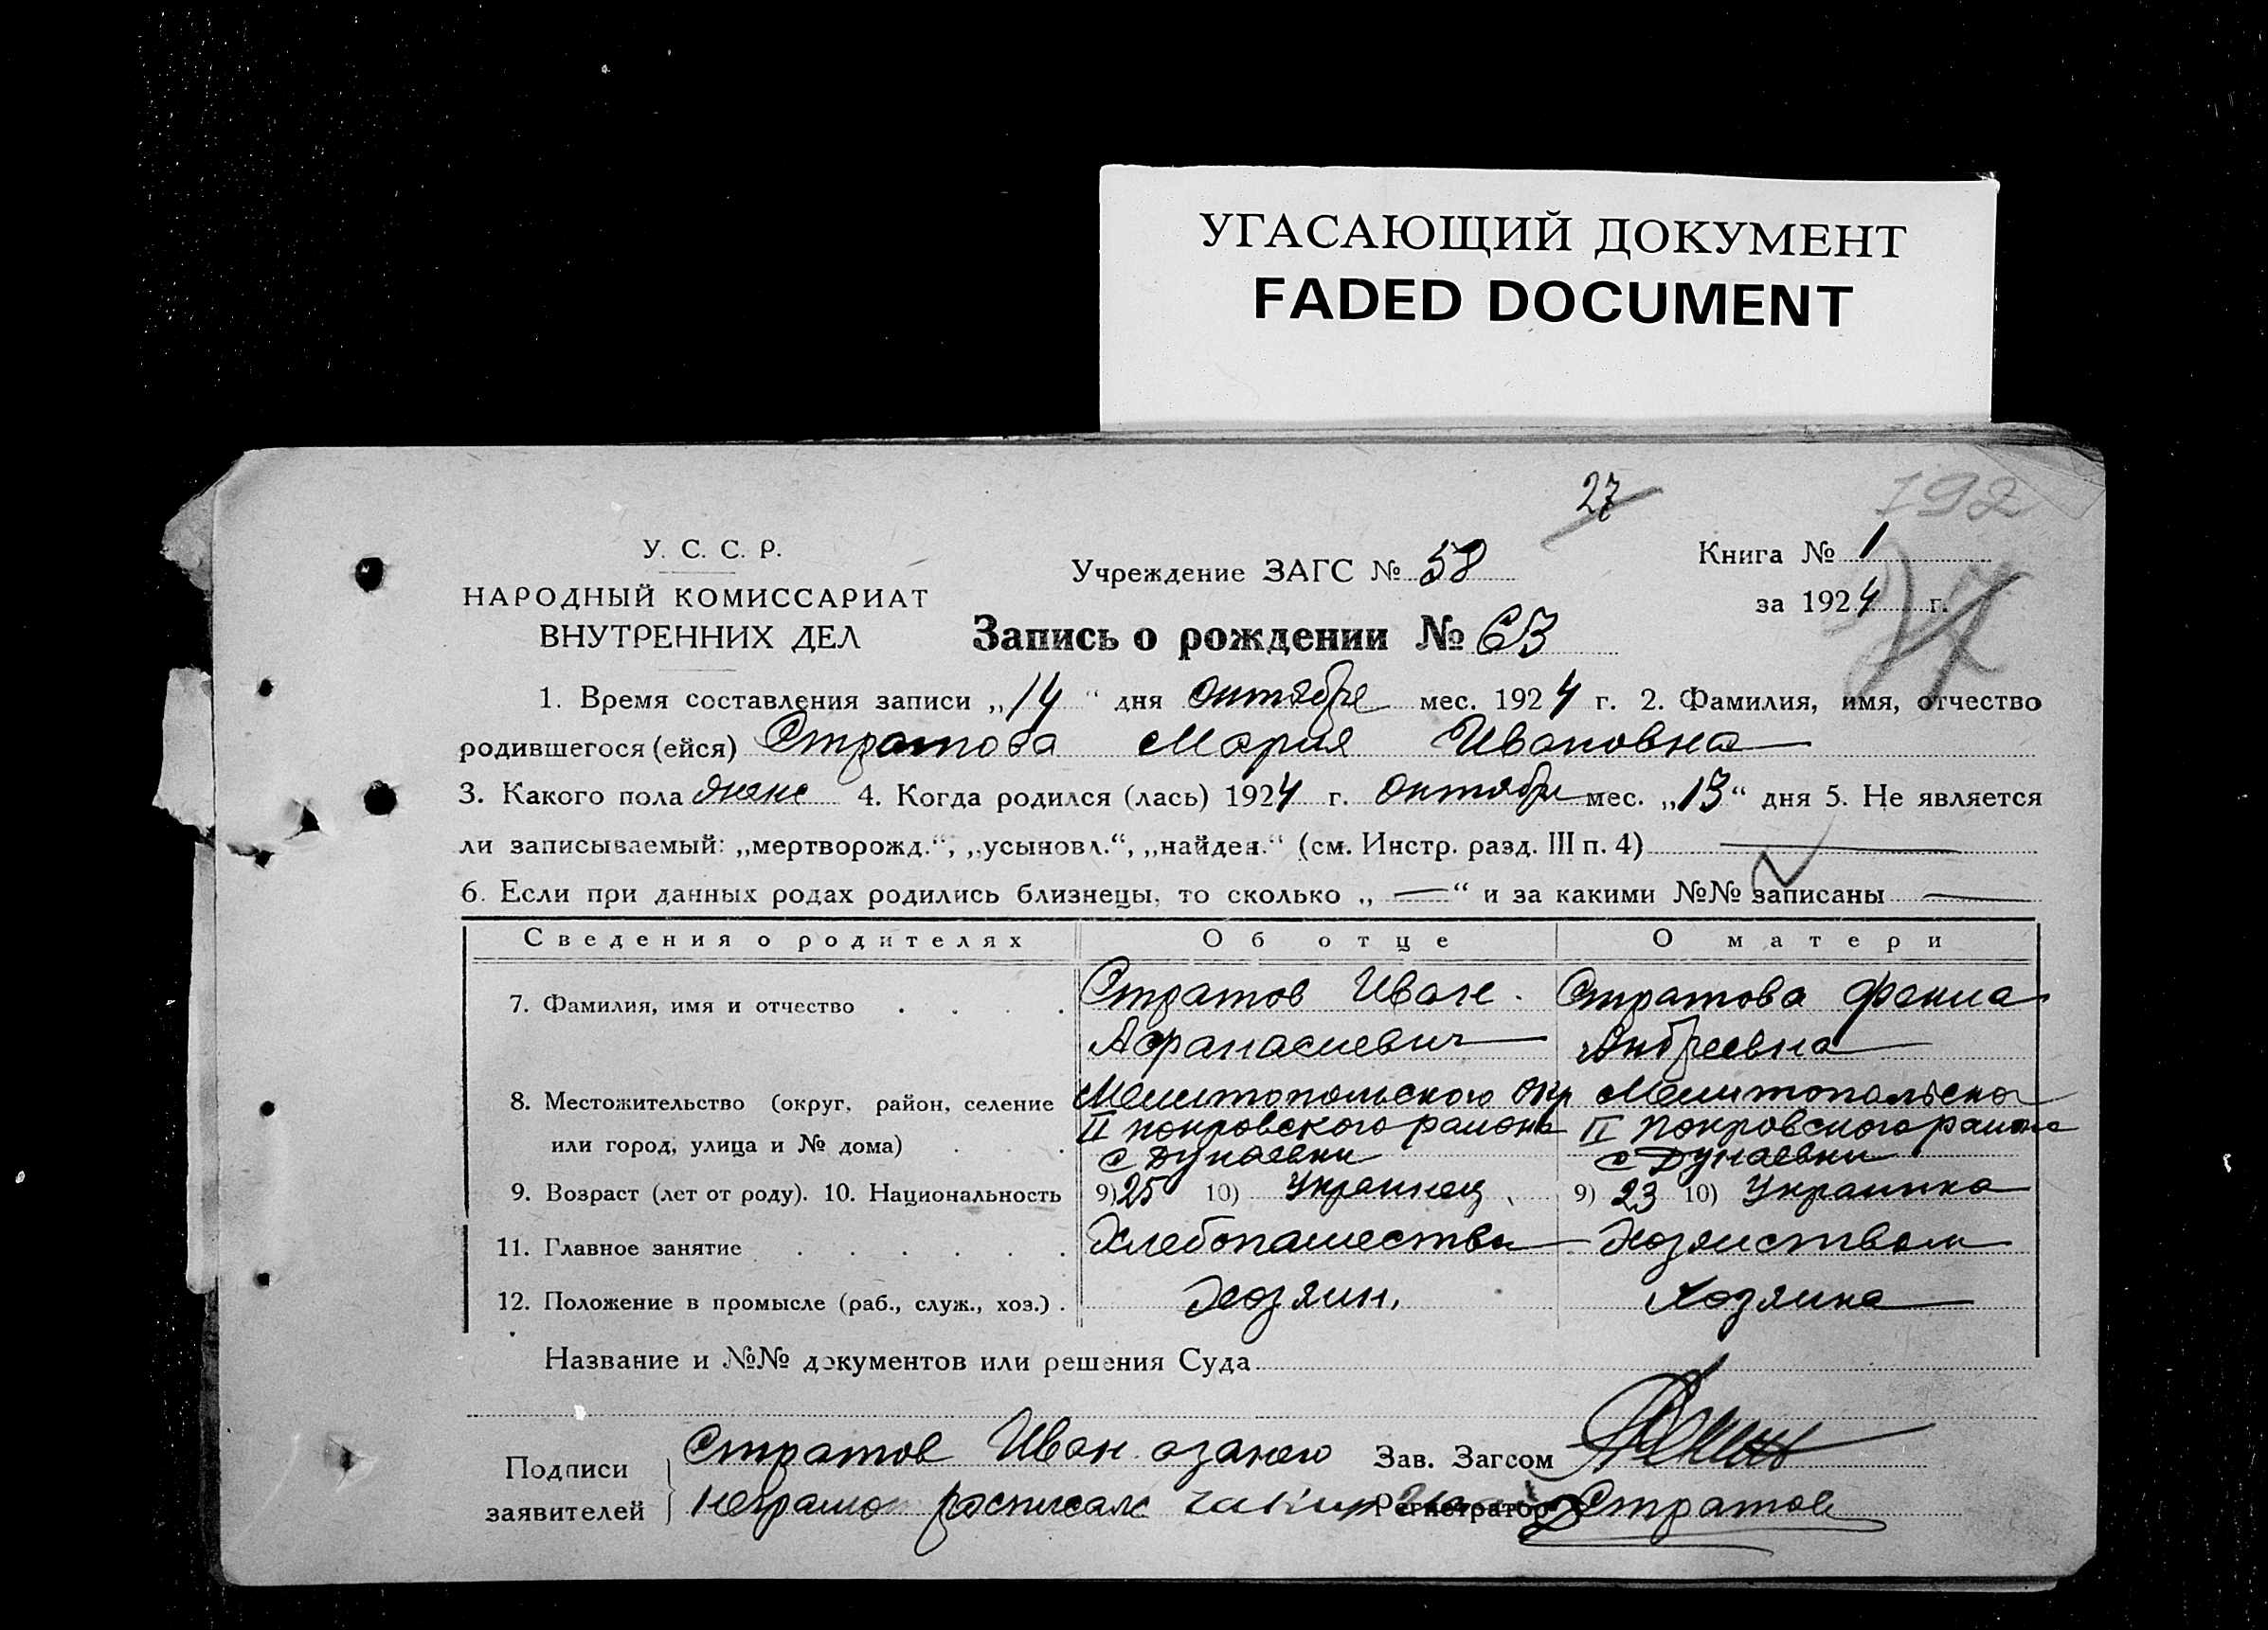 УГАСАЮЩИЙ ДОКУМЕНТ
FADED DOCUMENT
27
192
У. С. С. Р.
НАРОДНЫЙ КОМИССАРИАТ
ВНУТРЕННИХ ДЕЛ
Учреждение ЗАГС № 58
Книга № 1
за 1924 г.
Запись о рождении № 63
1. Время составления записи „14“ дня октября мес. 1924 г. 2. Фамилия, имя, отчество
родившегося (ейся) Стратова Мария Ивановна
3. Какого пола женс 4. Когда родился (лась) 1924 г. октября мес. „13“ дня 5. Не является
ли записываемый: „мертворожд.“, „усыновл.“, „найден.“ (см. Инстр. разд. III п. 4)
6. Если при данных родах родились близнецы, то сколько „—“ и за какими №№ записаны —
Сведения о родителях Об отце О матери
7. Фамилия, имя и отчество . . . . Стратов Иван Стратова Фекла
Афанасиевич Андреевна
8. Местожительство (округ, район, селение Мелитопольского окр Мелитопольско
или город, улица и № дома) . . . II покровского района II Покровского района
с Дунаевки с Дунаевки
9. Возраст (лет от роду). 10. Национальность 9) 25 10) Украинец 9) 23 10) Украинка
11. Главное занятие . . . . . . Хлебопашество Хозяиством
12. Положение в промысле (раб., служ., хоз.) . Хозяин, Хозяика
Название и №№ документов или решения Суда
Подписи Стратов Иван азанего Зав. Загсом
заявителей неграмо расписалс Регистратор Стратов